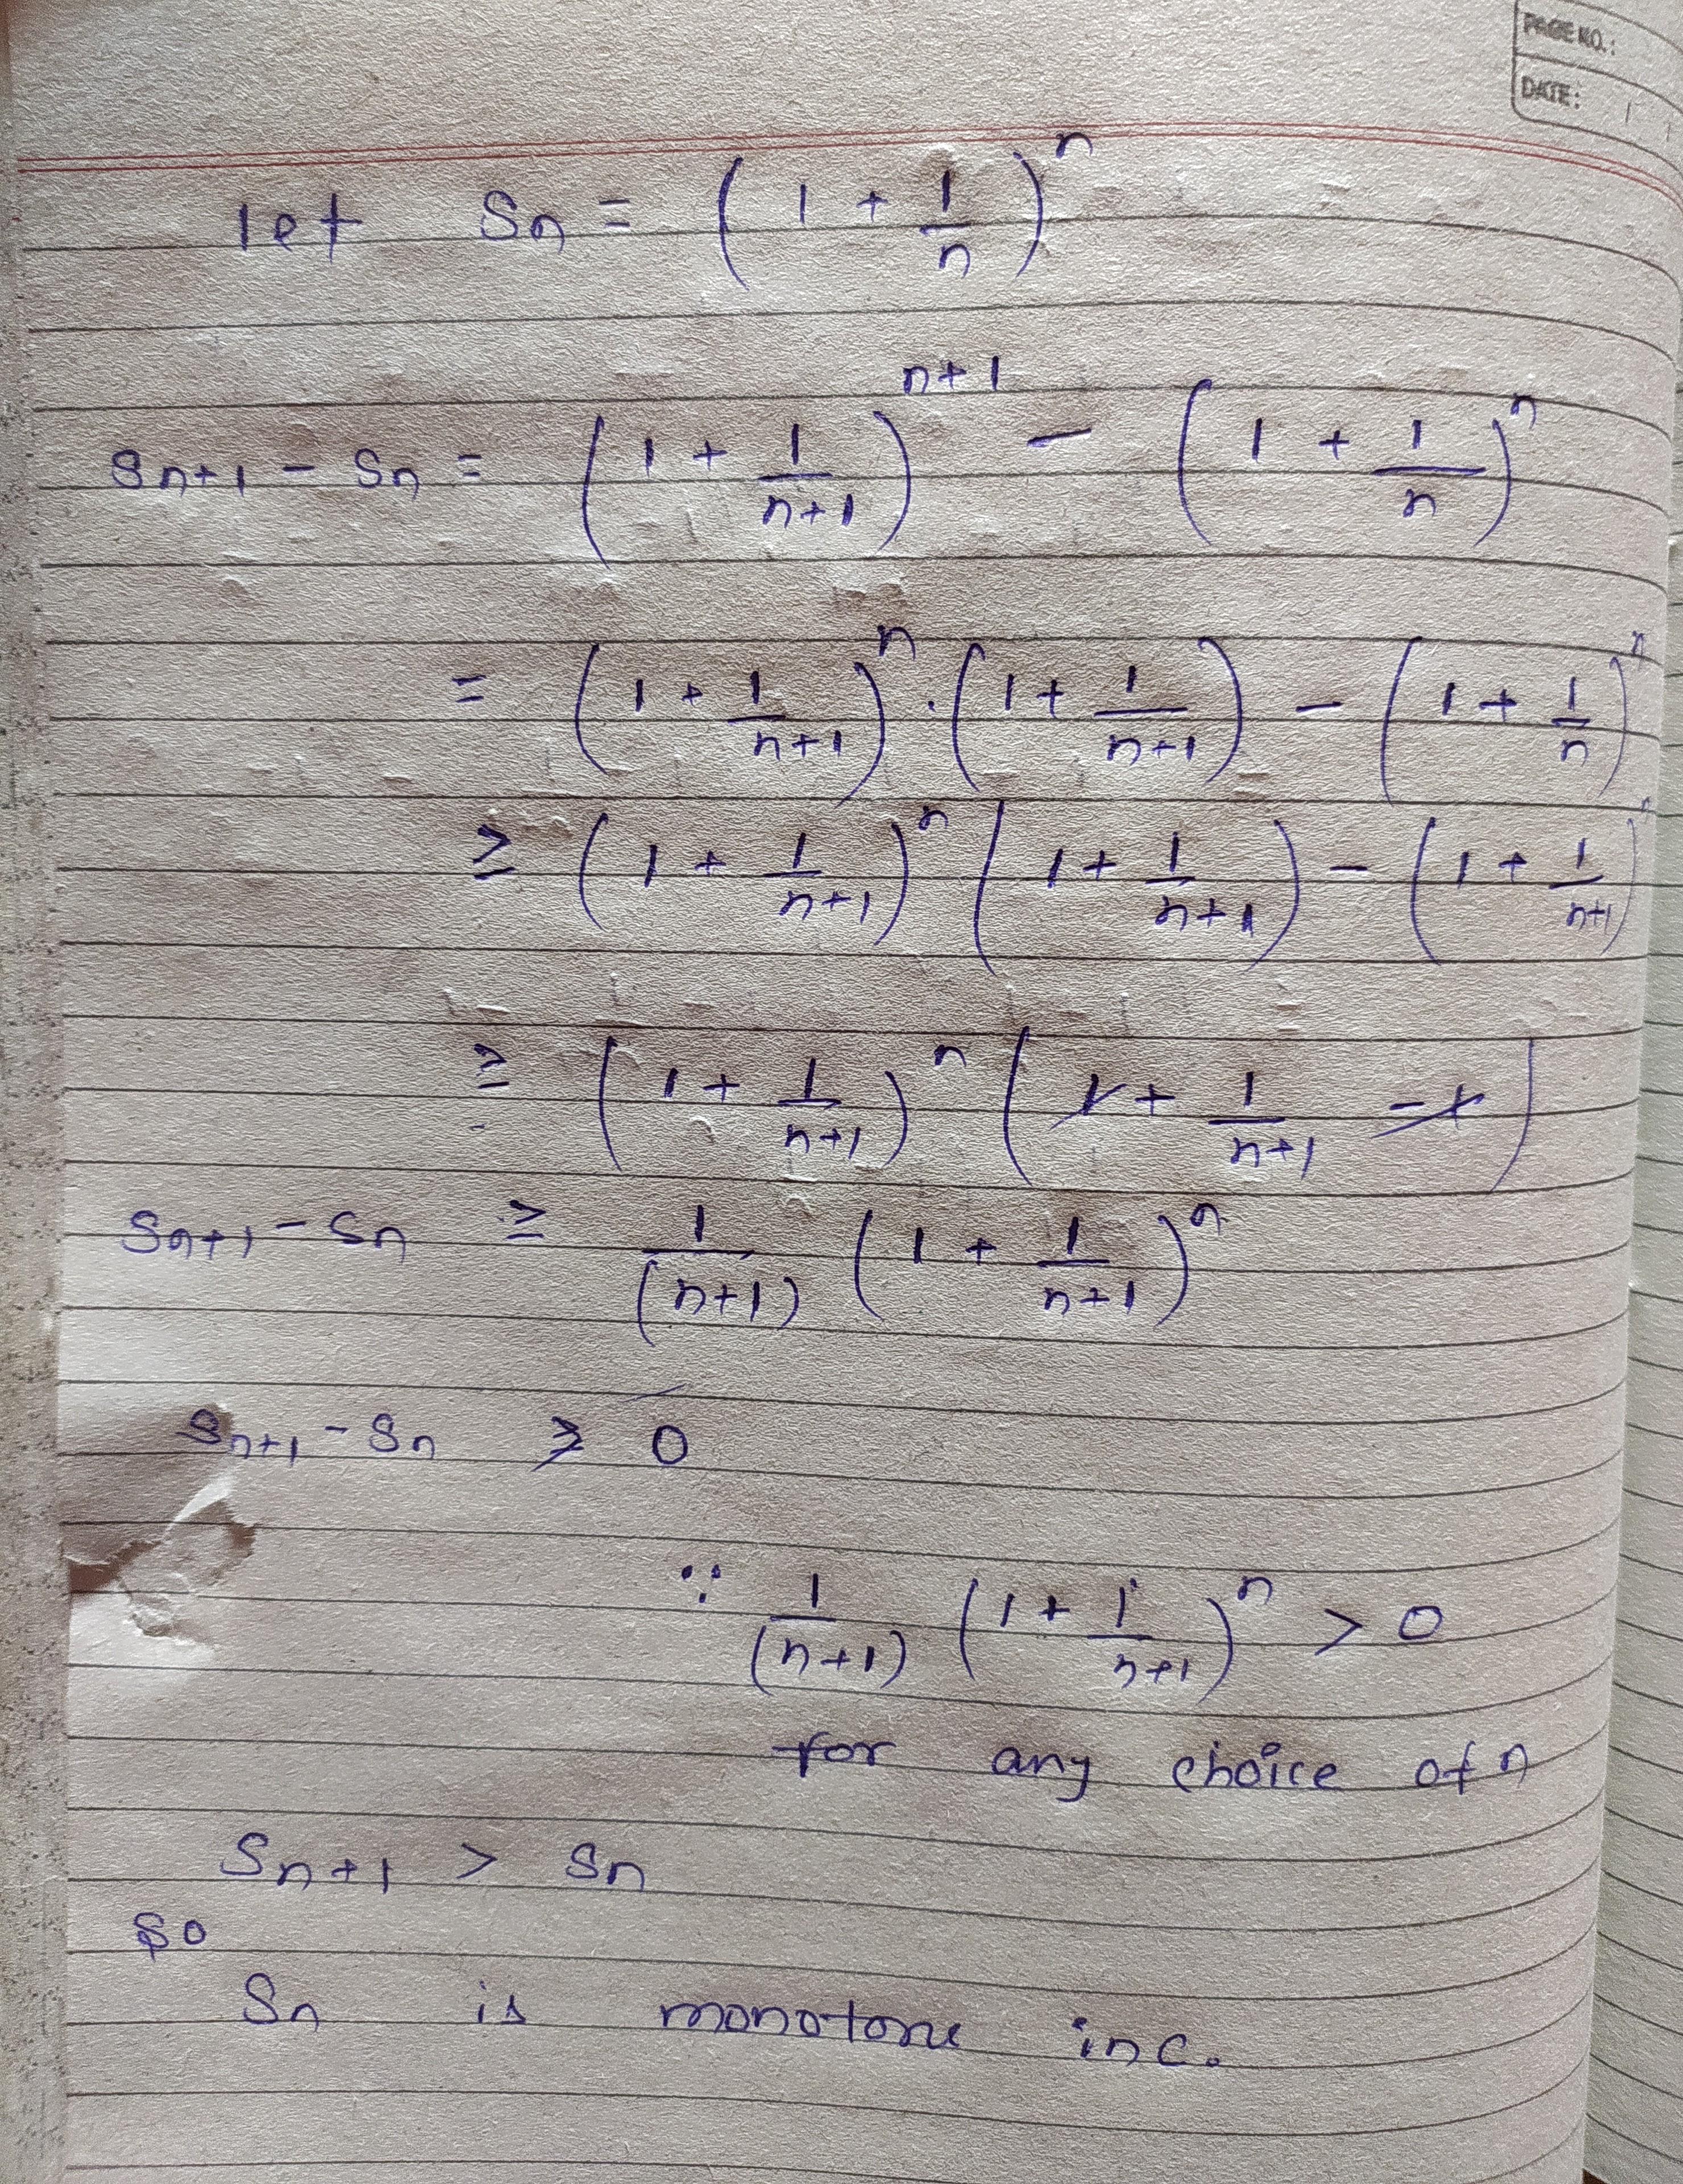 PAGE NO.:
DATE: / /
let Sn = (1 + 1/n)^n
Sn+1 - Sn = (1 + 1/(n+1))^(n+1) - (1 + 1/n)^n
= (1 + 1/(n+1))^n . (1 + 1/(n+1)) - (1 + 1/n)^n
≥ (1 + 1/(n+1))^n (1 + 1/(n+1)) - (1 + 1/(n+1))^n
≥ (1 + 1/(n+1))^n (1 + 1/(n+1) - 1)
Sn+1 - Sn ≥ 1/(n+1) (1 + 1/(n+1))^n
Sn+1 - Sn ≥ 0
∵ 1/(n+1) (1 + 1/(n+1))^n > 0
for any choice of n
Sn+1 > Sn
So
Sn is monotone inc.